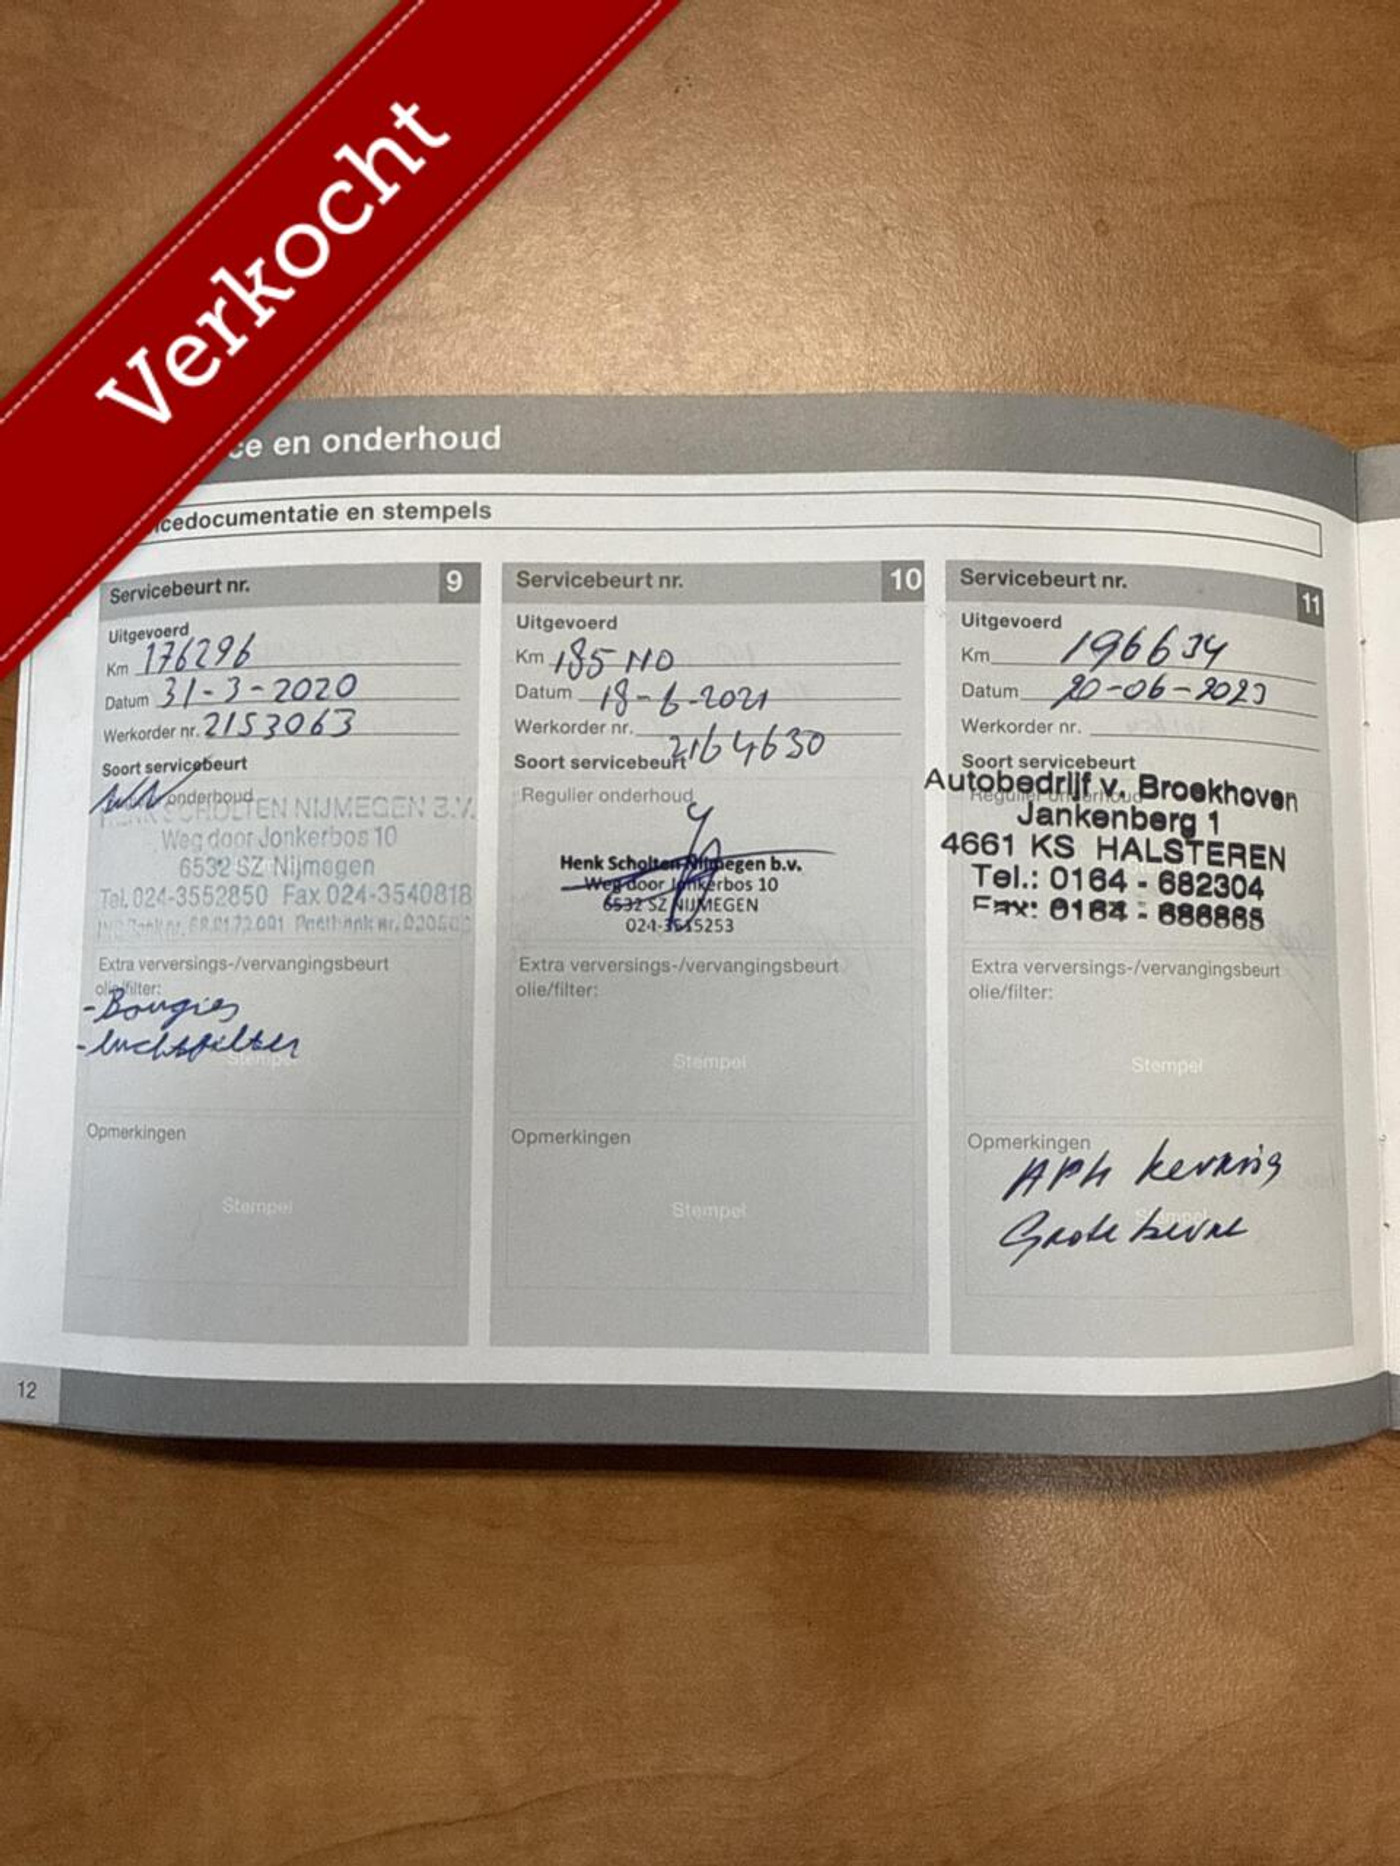 Verkocht
ce en onderhoud
cedocumentatie en stempels
Servicebeurt nr. 9
Uitgevoerd
Km 176296
Datum 31-3-2020
Werkorder nr. 2153063
Soort servicebeurt
onderhoud
SCHOLTEN NIJMEGEN B.V.
Weg door Jonkerbos 10
6532 SZ Nijmegen
Tel. 024-3552850 Fax 024-3540818
Extra verversings-/vervangingsbeurt
olie/filter:
-Bougies
-luchtfilter
Stempel
Opmerkingen
Stempel
12
Servicebeurt nr. 10
Uitgevoerd
Km 185
Datum 18-6-2021
Werkorder nr. 2164630
Soort servicebeurt
Regulier onderhoud
Henk Scholten Nijmegen b.v.
Weg door Jonkerbos 10
6532 SZ NIJMEGEN
Extra verversings-/vervangingsbeurt
olie/filter:
Stempel
Opmerkingen
Stempel
Servicebeurt nr. 11
Uitgevoerd
Km 196634
Datum 20-06-2023
Werkorder nr.
Soort servicebeurt
Regulier onderhoud
Autobedrijf v. Broekhoven
Jankenberg 1
4661 KS HALSTEREN
Tel.: 0164 - 682304
Fax: 0164 -
Extra verversings-/vervangingsbeurt
olie/filter:
Stempel
Opmerkingen
APK keuring
Stempel
Grote beurt